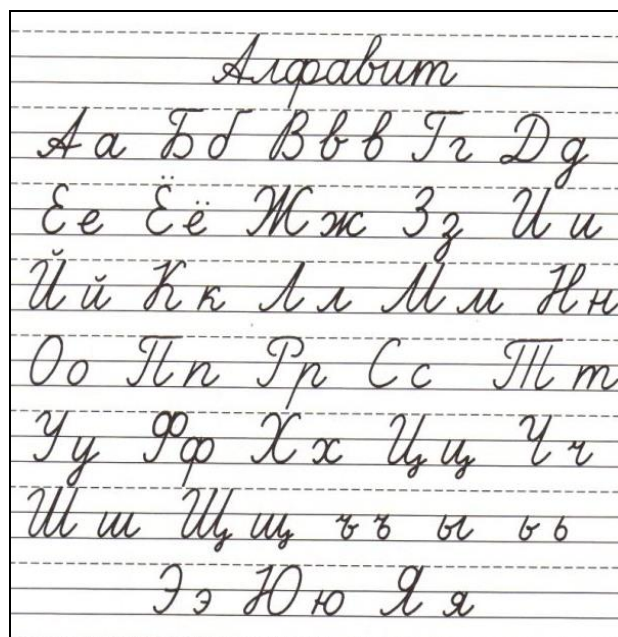 Алфавит
Аа Бб Ввв Гг Дд
Ее Ёё Жж Зз Ии
Йй Кк Лл Мм Нн
Оо Пп Рр Сс Тт
Уу Фф Хх Цц Чч
Шш Щщ ъъ ы ьь
Ээ Юю Яя